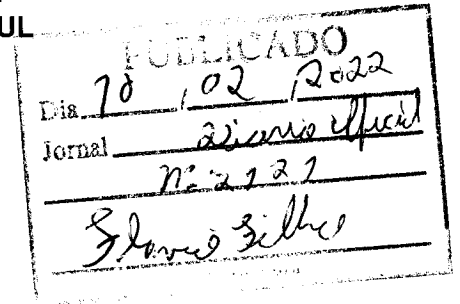 UL
PUBLICADO
Dia 10 / 02 / 2022
Jornal Diario Oficial
Nº 2121